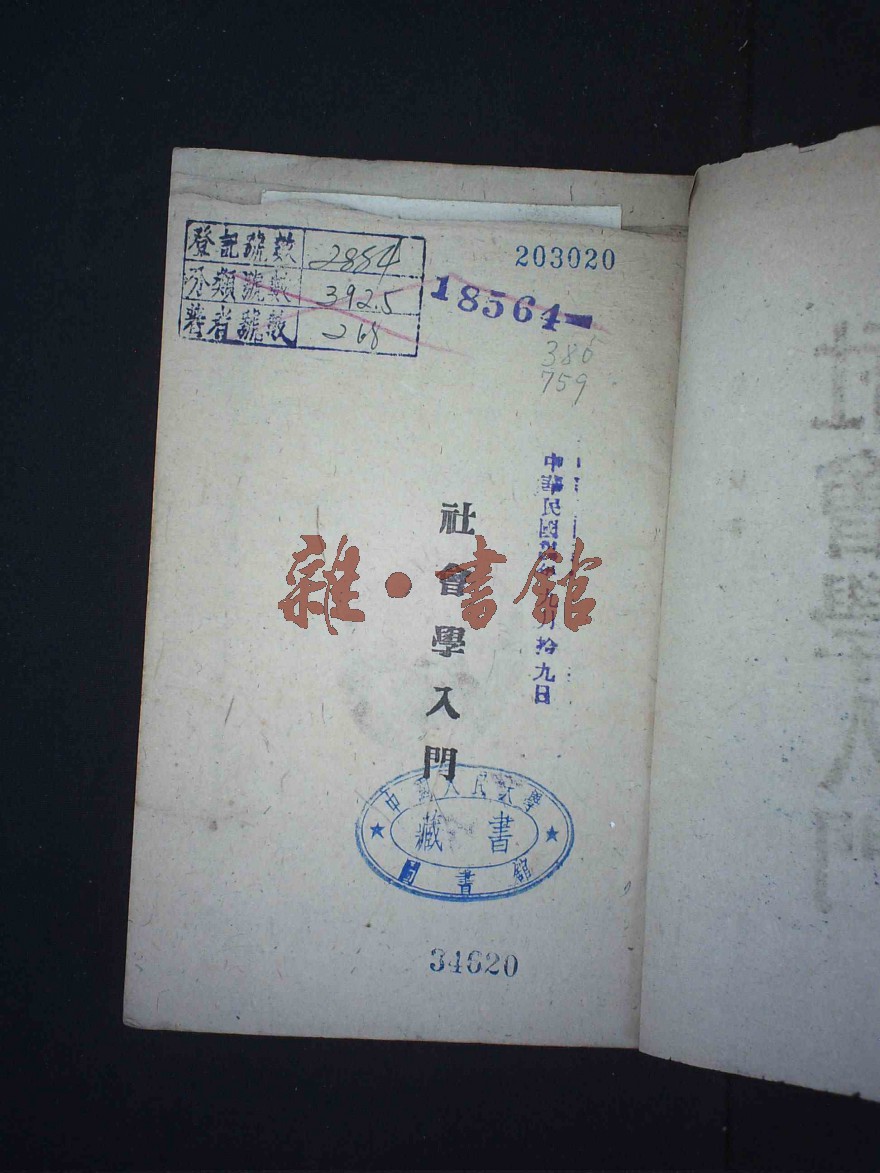 登記號數 2884
分類號數 392.5
著者號數 268
203020
18564
386
759
中華民國
九月拾九日
社會學入門
雜·書館
中國人民大學
藏書
圖書館
34620
社會學入門